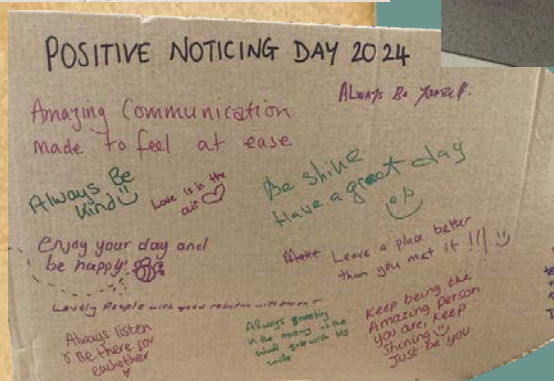 POSITIVE NOTICING DAY 2024
ALWAYS BE YOURSELF.
Amazing Communication
made to feel at ease
Always Be
Kind
Love is in the
air
Be shine
Have a great day
enjoy your day and
be happy!
Make Leave a place better
than you met it !!!
Lovely People with good relation with
Always listen
& Be there for
eachother
Always greeting
in the morning at the
school gate with big
smile
Keep being the
Amazing person
you are, keep
Shining
Just be you.